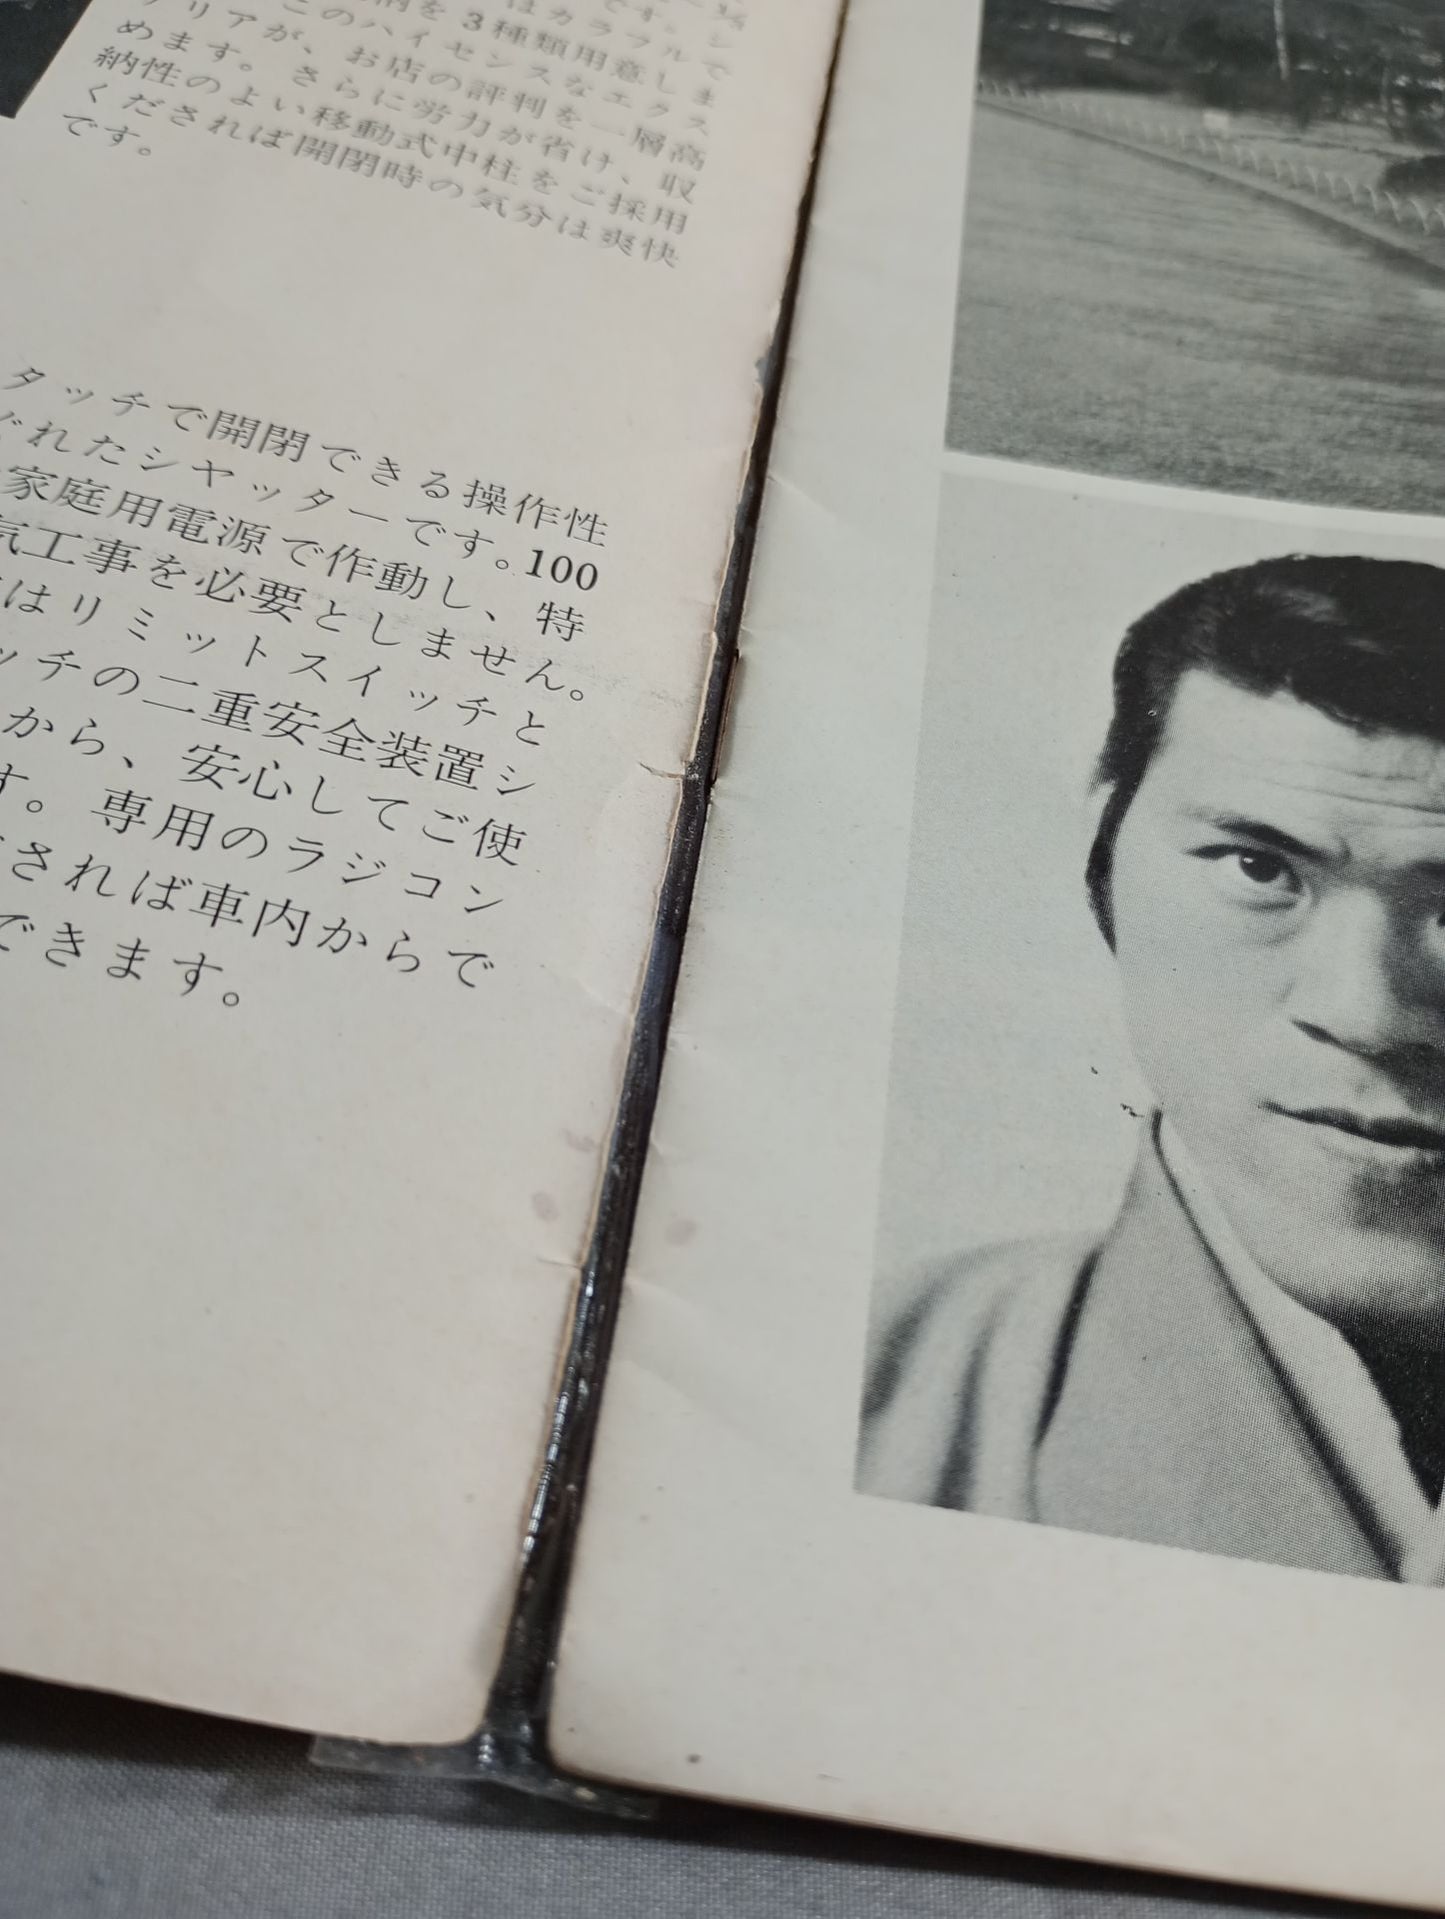 柄を3種類用意しま
はカラフルで
このハイセンスなエクス
テリアが、お店の評判を一層高
めます。さらに労力が省け、収
納性のよい移動式中柱をご採用
くだされば開閉時の気分は爽快
です。
タッチで開閉できる操作性
ぐれたシヤッターです。100
家庭用電源で作動し、特
気工事を必要としません。
はリミットスイッチと
ッチの二重安全装置シ
から、安心してご使
す。専用のラジコン
されば車内からで
できます。